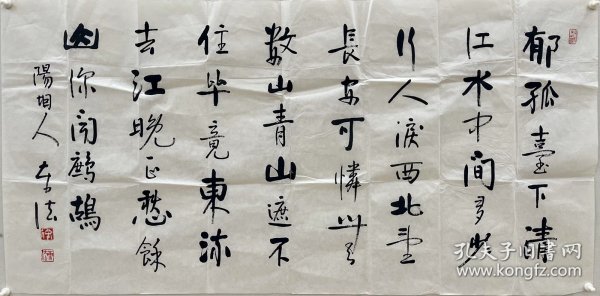 郁孤臺下清
江水中間多少
行人淚西北望
長安可憐無
数山青山遮不
住毕竟東流
去江晚正愁餘
山深闻鹧鸪
陽人
孔夫子旧书网
www.kongfz.com